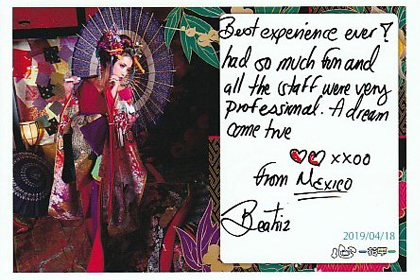 Best experience ever!
had so much fun and
all the staff were very
professional. A dream
come true
xxoo
from MEXICO
Beatriz
2019/04/18